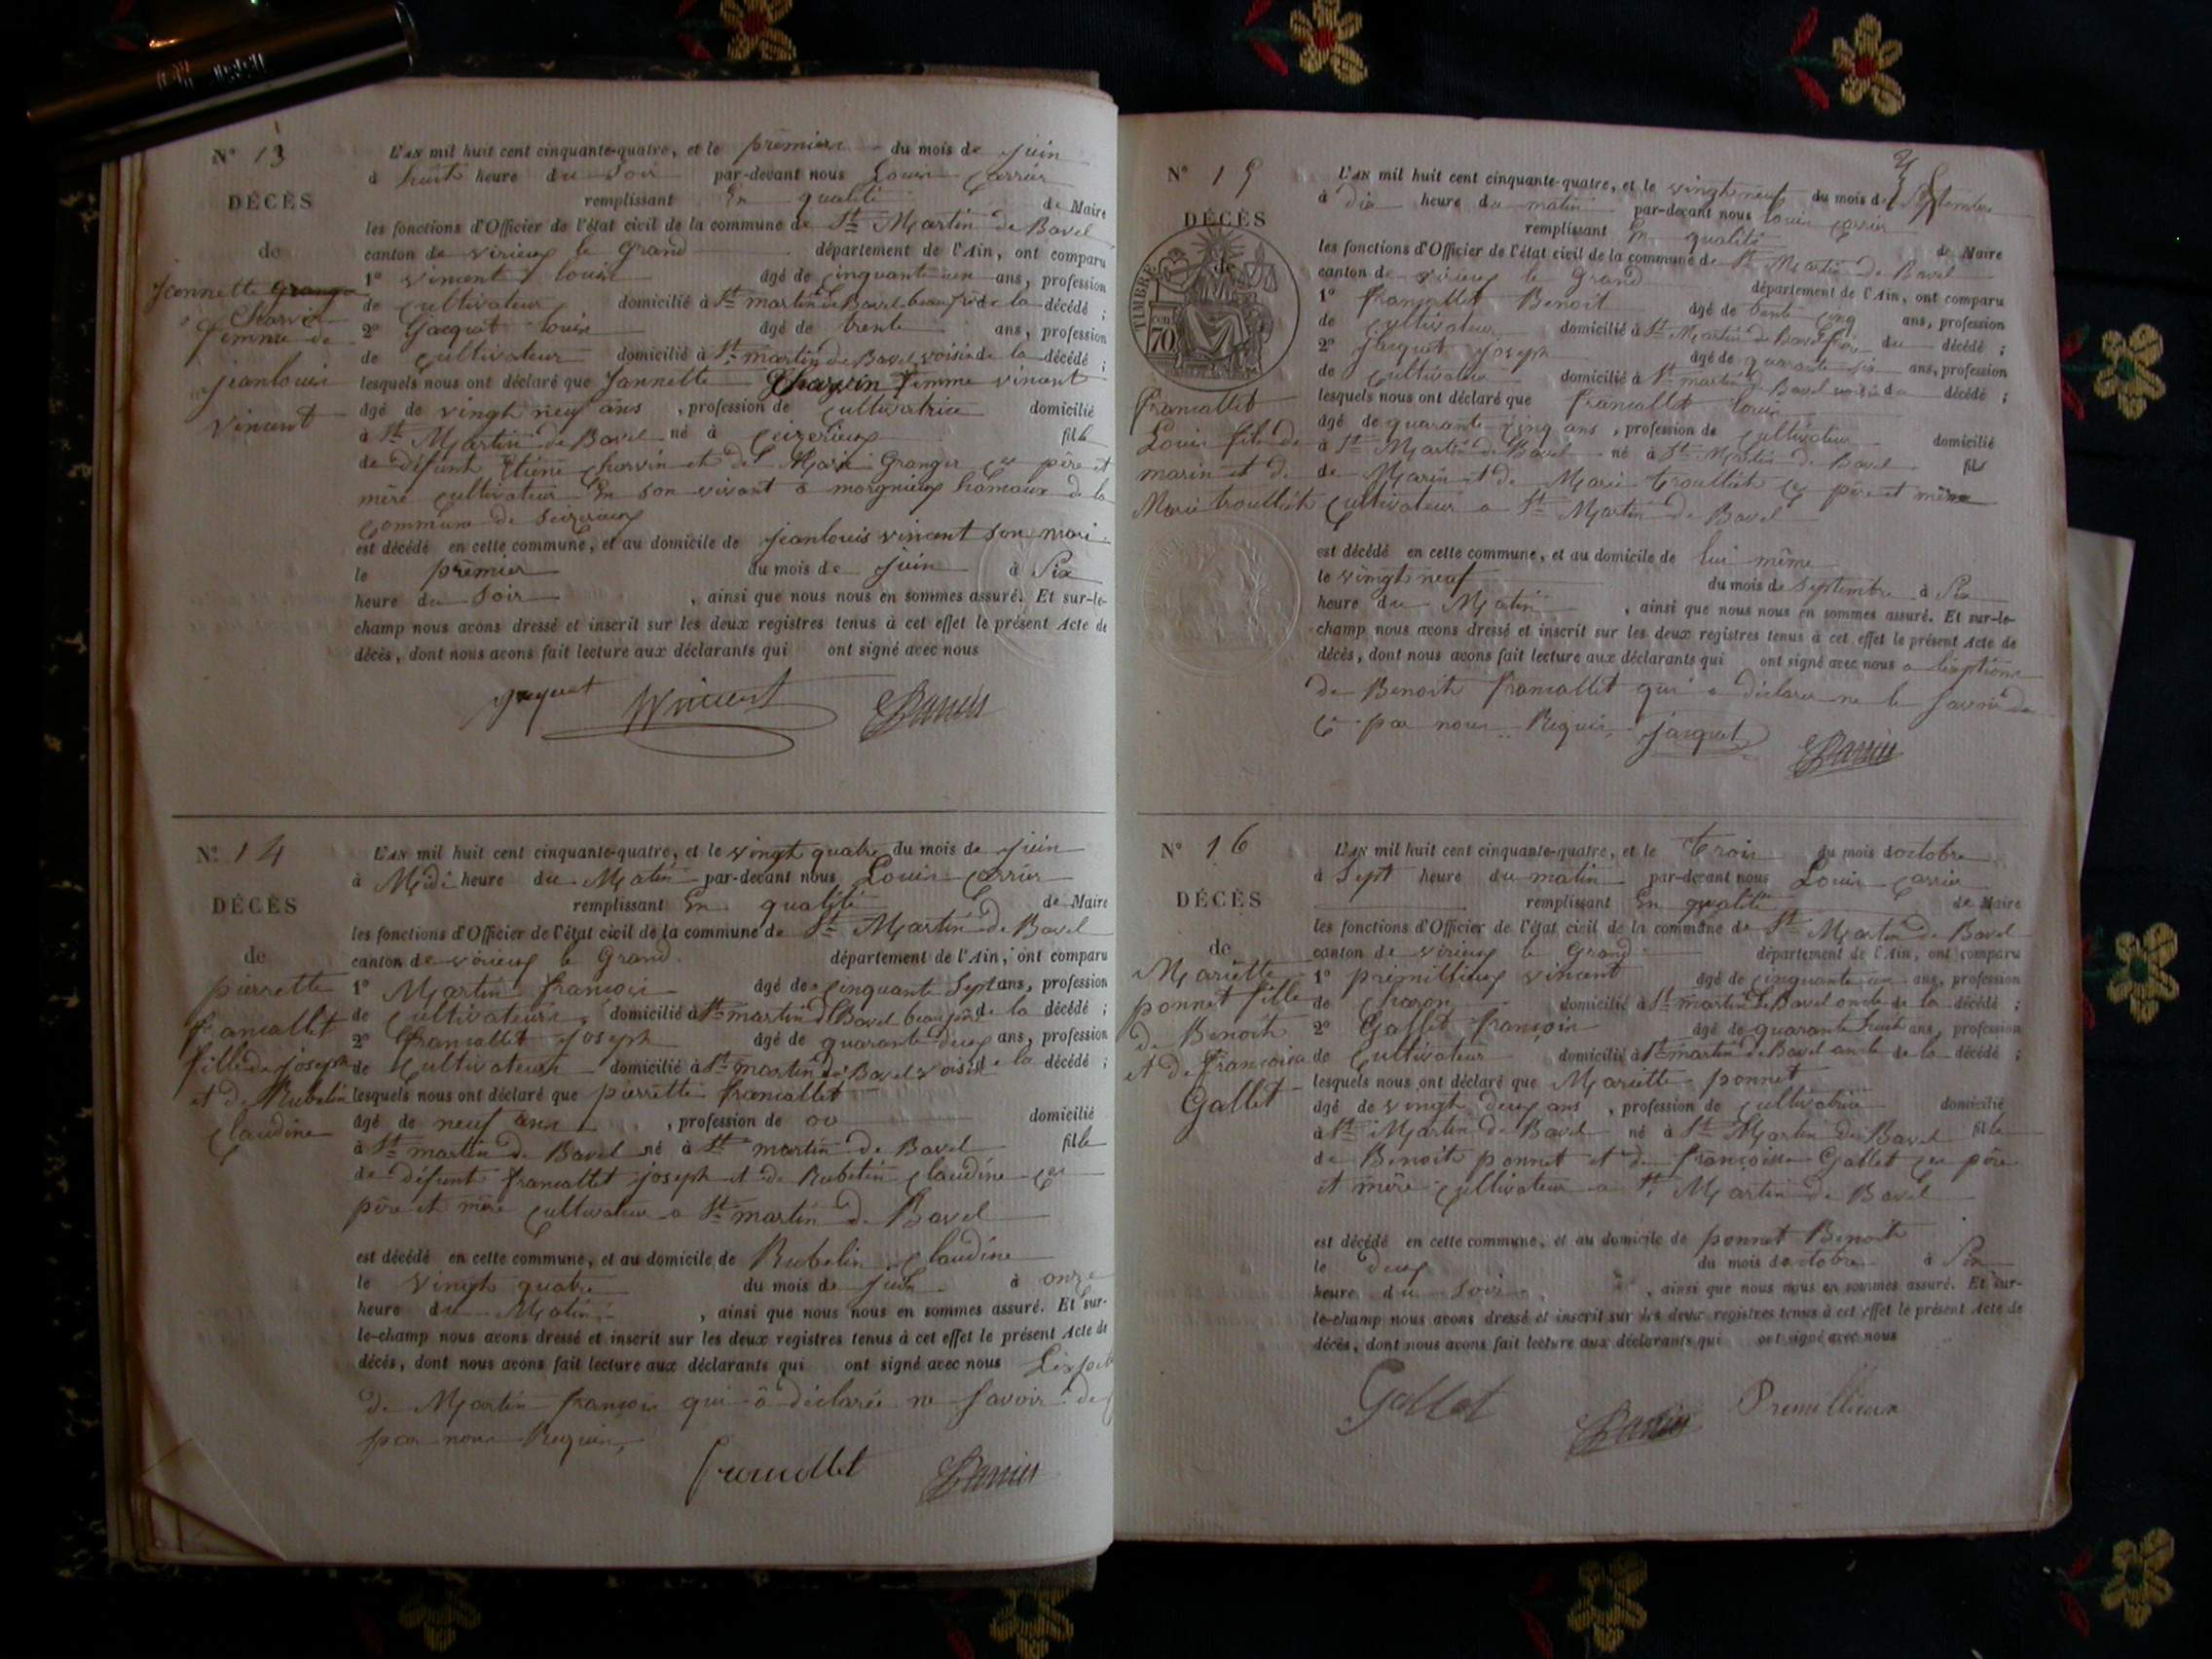 N° 13
DÉCÈS
de
Jeannette Granger
Charvin
femme de
jeanlouis
vincent
L'AN mil huit cent cinquante-quatre, et le premier du mois de juin
à huit heure du soir par-devant nous Louis
remplissant En qualité de Maire
les fonctions d'Officier de l'état civil de la commune de St Martin de Bavel
canton de virieux le Grand département de l'Ain, ont comparu
1° vincent louis âgé de cinquante un ans, profession
de cultivateur domicilié à St martin de Bavel beaufrère de la décédé ;
2° Jacquet louis âgé de trente ans, profession
de cultivateur domicilié à St martin de Bavel voisin de la décédé ;
lesquels nous ont déclaré que Jannette Charvin femme vincent
âgé de vingt neuf ans , profession de cultivatrice domicilié
à St Martin de Bavel né à Ceizerieux fille
de défunt Etiene Charvin et de Marie Granger ces père et
mère cultivateur En son vivant a morgnieux hameaux de la
commune de Seizerieux
est décédé en cette commune, et au domicile de jeanlouis vincent son mari
le premier du mois de juin à Six
heure du Soir , ainsi que nous nous en sommes assuré. Et sur-le-
champ nous avons dressé et inscrit sur les deux registres tenus à cet effet le présent Acte de
décès, dont nous avons fait lecture aux déclarants qui ont signé avec nous
Jacquet Vincent
N° 14
DÉCÈS
de
pierrette
francallet
fille de joseph
et de Rubelin
claudine
L'AN mil huit cent cinquante-quatre, et le vingt quatre du mois de juin
à Midi heure du Matin par-devant nous Louis
remplissant En qualité de Maire
les fonctions d'Officier de l'état civil de la commune de St Martin de Bavel
canton de virieux le Grand département de l'Ain, ont comparu
1° Martin françois âgé de cinquante Sept ans, profession
de cultivateur domicilié à St martin de Bavel beaupère de la décédé ;
2° francallet joseph âgé de quarante deux ans, profession
de Cultivateur domicilié à St martin de Bavel voisin de la décédé ;
lesquels nous ont déclaré que pierrette francallet
âgé de neuf ans , profession de domicilié
à St martin de Bavel né à St martin de Bavel fille
de défunt francallet joseph et de Rubelin claudine ces
père et mère cultivateur a St martin de Bavel
est décédé en cette commune, et au domicile de Rubelin claudine
le vingt quatre du mois de juin à onze
heure du Matin , ainsi que nous nous en sommes assuré. Et sur-
le-champ nous avons dressé et inscrit sur les deux registres tenus à cet effet le présent Acte de
décès, dont nous avons fait lecture aux déclarants qui ont signé avec nous
de Martin françois qui a déclaré ne savoir de
par nous Requis,
francallet
N° 15
DÉCÈS
de
TIMBRE
70
francallet
Louis fils de
marin et de
Marie trouillet
L'AN mil huit cent cinquante-quatre, et le vingt neuf du mois de Septembre
à dix heure du matin par-devant nous Louis
remplissant En qualité de Maire
les fonctions d'Officier de l'état civil de la commune de St Martin de Bavel
canton de virieux le Grand département de l'Ain, ont comparu
1° francallet Benoit âgé de trente cinq ans, profession
de cultivateur domicilié à St Martin de Bavel frère du décédé ;
2° jacquet joseph âgé de quarante six ans, profession
de cultivateur domicilié à St martin de Bavel voisin du décédé ;
lesquels nous ont déclaré que francallet louis
âgé de quarante cinq ans , profession de cultivateur domicilié
à St Martin de Bavel né à St Martin de Bavel fils
de Marin et de Marie trouillet ces père et mère
Cultivateur a St Martin de Bavel
est décédé en cette commune, et au domicile de lui même
le vingt neuf du mois de Septembre à Six
heure du Matin , ainsi que nous nous en sommes assuré. Et sur-le-
champ nous avons dressé et inscrit sur les deux registres tenus à cet effet le présent Acte de
décès, dont nous avons fait lecture aux déclarants qui ont signé avec nous
de Benoit francallet qui a déclaré ne le savoir de
ce par nous Requis jacquet
N° 16
DÉCÈS
de
Mariette
ponnet fille
de Benoit
et de françoise
Gallet
L'AN mil huit cent cinquante-quatre, et le trois du mois doctobre
à Sept heure du matin par-devant nous Louis
remplissant En qualité de Maire
les fonctions d'Officier de l'état civil de la commune de St Martin de Bavel
canton de virieux le Grand département de l'Ain, ont comparu
1° prémillieux vincent âgé de cinquante un ans, profession
de charon domicilié à St martin de Bavel oncle de la décédé ;
2° Gallet françois âgé de quarante huit ans, profession
de cultivateur domicilié à St martin de Bavel oncle de la décédé ;
lesquels nous ont déclaré que Mariette ponnet
âgé de vingt deux ans , profession de cultivatrice domicilié
à St Martin de Bavel né à St Martin de Bavel fille
de Benoit ponnet et de françoise Gallet ces père
et mère cultivateur a St Martin de Bavel
est décédé en cette commune, et au domicile de ponnet Benoit
le deux du mois doctobre à
heure du Soir , ainsi que nous nous en sommes assuré. Et sur-
le-champ nous avons dressé et inscrit sur les deux registres tenus à cet effet le présent Acte de
décès, dont nous avons fait lecture aux déclarants qui ont signé avec nous
Gallet Premillieux